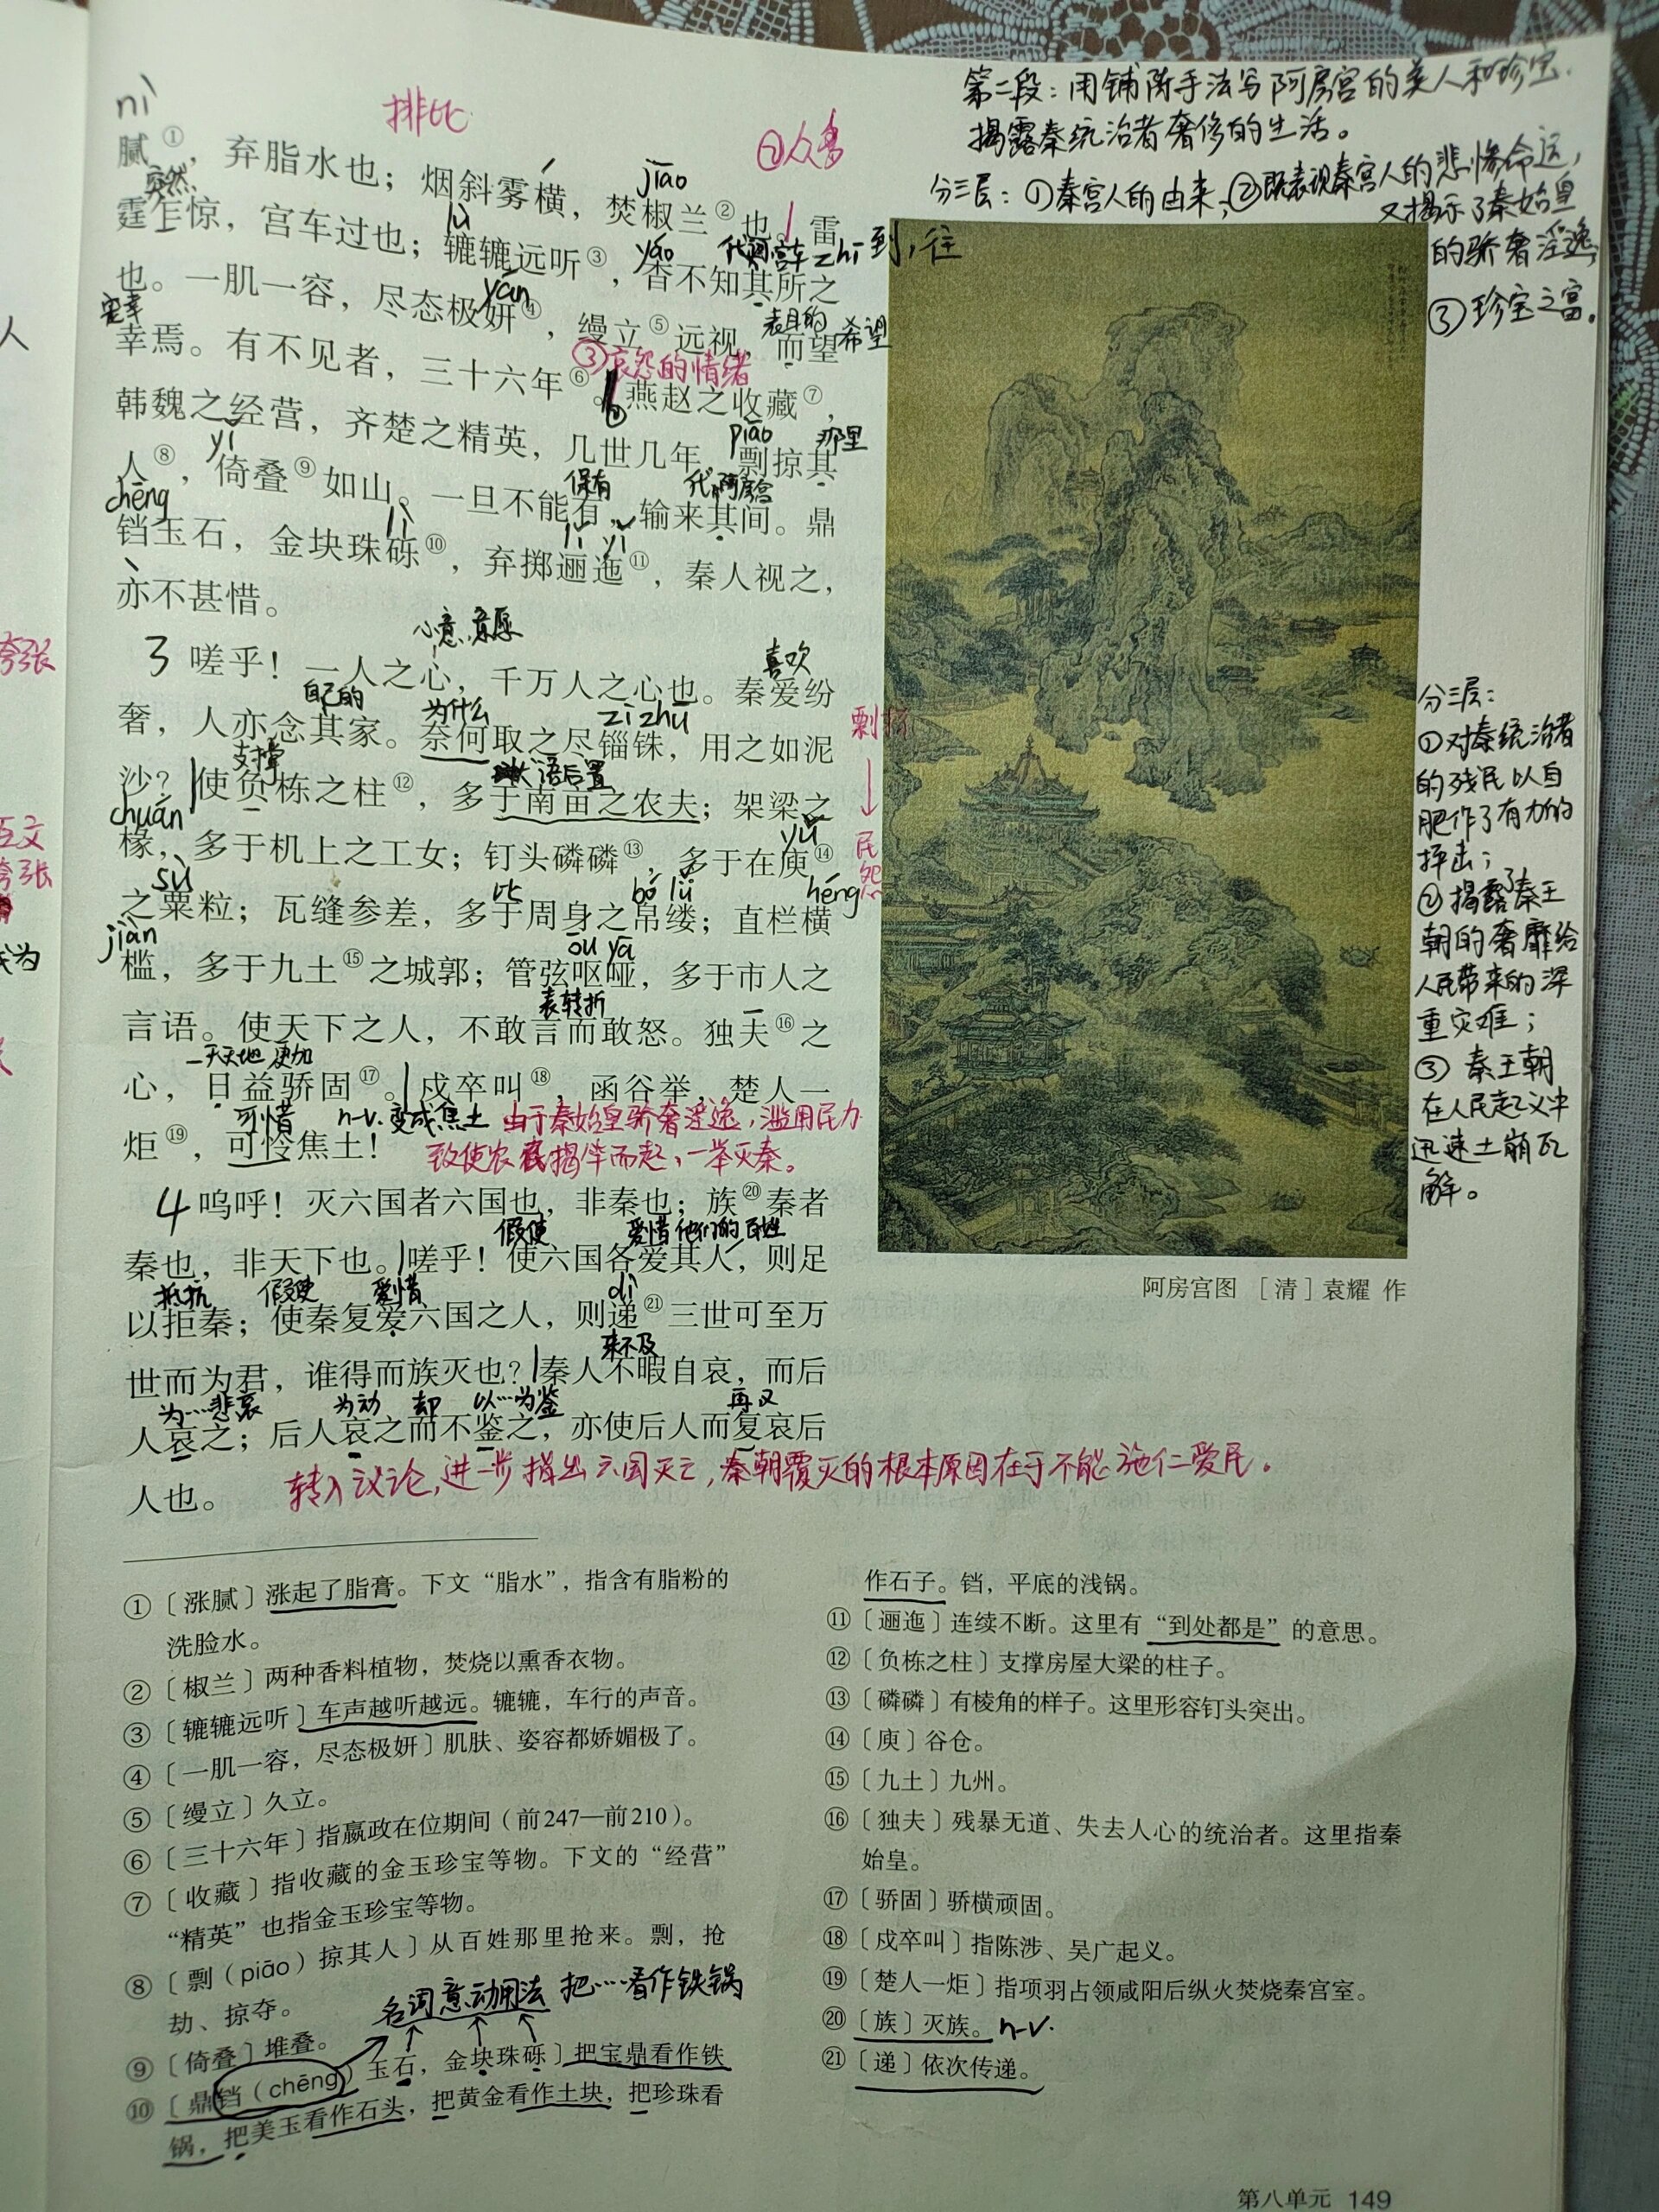 第二段：用铺陈手法写阿房宫的美人和珍宝.
揭露秦统治者奢侈的生活。
分三层：①秦宫人的由来，②既表现秦宫人的悲惨命运，
又揭示了秦始皇
的骄奢淫逸，
③珍宝之富。
nì
排比
②人多
腻①，弃脂水也；烟斜雾横，焚椒兰②也。雷
突然
jiāo
霆乍惊，宫车过也；辘辘远听③，杳不知其所之
lù
yǎo
代词宫车
zhī到，往
也。一肌一容，尽态极妍④，缦立⑤远视，而望
yán
宠幸
表目的
希望
幸焉。有不见者，三十六年⑥。燕赵之收藏⑦，
③哀怨的情绪
韩魏之经营，齐楚之精英，几世几年，剽掠其
yǐ
piāo
那里
人⑧，倚叠⑨如山。一旦不能有，输来其间。鼎
chēng
保有
代阿房宫
铛玉石，金块珠砾⑩，弃掷逦迤⑪，秦人视之，
lì
lǐ yǐ
亦不甚惜。
心意，意愿
喜欢
3 嗟乎！一人之心，千万人之心也。秦爱纷
自己的
为什么
zī zhū
奢，人亦念其家。奈何取之尽锱铢，用之如泥
剥
支撑
状语后置
沙？使负栋之柱⑫，多于南亩之农夫；架梁之
chuán
椽，多于机上之工女；钉头磷磷⑬，多于在庾⑭
yǔ
民怨
sù
比
bó lǚ
héng
之粟粒；瓦缝参差，多于周身之帛缕；直栏横
jiàn
ōu yā
槛，多于九土⑮之城郭；管弦呕哑，多于市人之
表转折
言语。使天下之人，不敢言而敢怒。独夫⑯之
一天天地 更加
心，日益骄固⑰。戍卒叫⑱，函谷举，楚人一
可惜
n-v.变成焦土
由于秦始皇骄奢淫逸，滥用民力
炬⑲，可怜焦土！
致使农民揭竿而起，一举灭秦。
4 呜呼！灭六国者六国也，非秦也；族⑳秦者
假使
爱惜 他们的 百姓
秦也，非天下也。嗟乎！使六国各爱其人，则足
抵抗
假使
爱惜
dì
以拒秦；使秦复爱六国之人，则递㉑三世可至万
来不及
世而为君，谁得而族灭也？秦人不暇自哀，而后
为……悲哀
为动
却
以……为鉴
再又
人哀之；后人哀之而不鉴之，亦使后人而复哀后
人也。
转入议论，进一步指出六国灭亡，秦朝覆灭的根本原因在于不能施仁爱民。
分三层：
①对秦统治者
的残民以自
肥作了有力的
抨击；
②揭露了秦王
朝的奢靡给
人民带来的深
重灾难；
③秦王朝
在人民起义中
迅速土崩瓦
解。
阿房宫图 ［清］袁耀 作
人
夸张
互文
夸张
成为
①〔涨腻〕涨起了脂膏。下文“脂水”，指含有脂粉的
洗脸水。
②〔椒兰〕两种香料植物，焚烧以熏香衣物。
③〔辘辘远听〕车声越听越远。辘辘，车行的声音。
④〔一肌一容，尽态极妍〕肌肤、姿容都娇媚极了。
⑤〔缦立〕久立。
⑥〔三十六年〕指嬴政在位期间（前247—前210）。
⑦〔收藏〕指收藏的金玉珍宝等物。下文的“经营”
“精英”也指金玉珍宝等物。
⑧〔剽（piāo）掠其人〕从百姓那里抢来。剽，抢
劫、掠夺。
名词意动用法 把……看作铁锅
⑨〔倚叠〕堆叠。
⑩〔鼎铛（chēng）玉石，金块珠砾〕把宝鼎看作铁
锅，把美玉看作石头，把黄金看作土块，把珍珠看
作石子。铛，平底的浅锅。
⑪〔逦迤〕连续不断。这里有“到处都是”的意思。
⑫〔负栋之柱〕支撑房屋大梁的柱子。
⑬〔磷磷〕有棱角的样子。这里形容钉头突出。
⑭〔庾〕谷仓。
⑮〔九土〕九州。
⑯〔独夫〕残暴无道、失去人心的统治者。这里指秦
始皇。
⑰〔骄固〕骄横顽固。
⑱〔戍卒叫〕指陈涉、吴广起义。
⑲〔楚人一炬〕指项羽占领咸阳后纵火焚烧秦宫室。
⑳〔族〕灭族。n-v.
㉑〔递〕依次传递。
第八单元 149